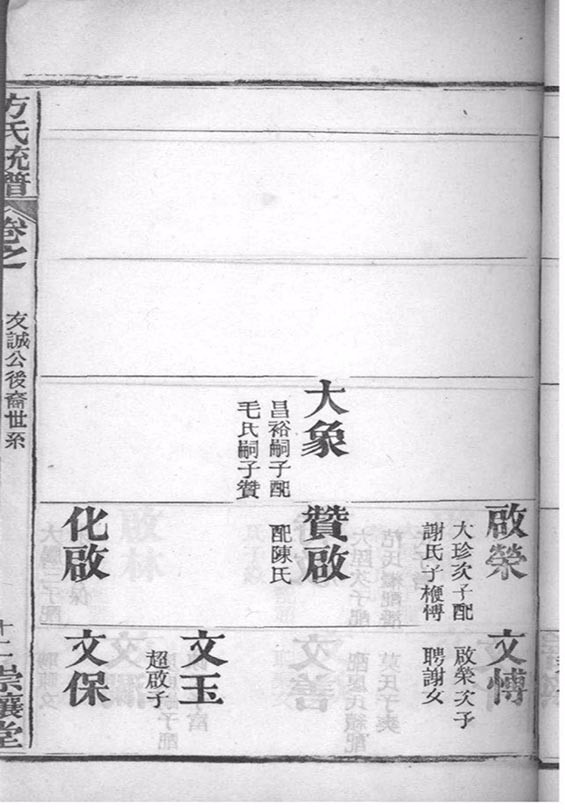 大象
昌裕嗣子配
毛氏嗣子贊
啟榮
大珍次子配
謝氏子愽
贊啟
配陳氏
化啟
文愽
啟榮次子
聘謝女
文玉
超啟子
文保
方氏統譜
卷之
友誠公後裔世系
崇讓堂